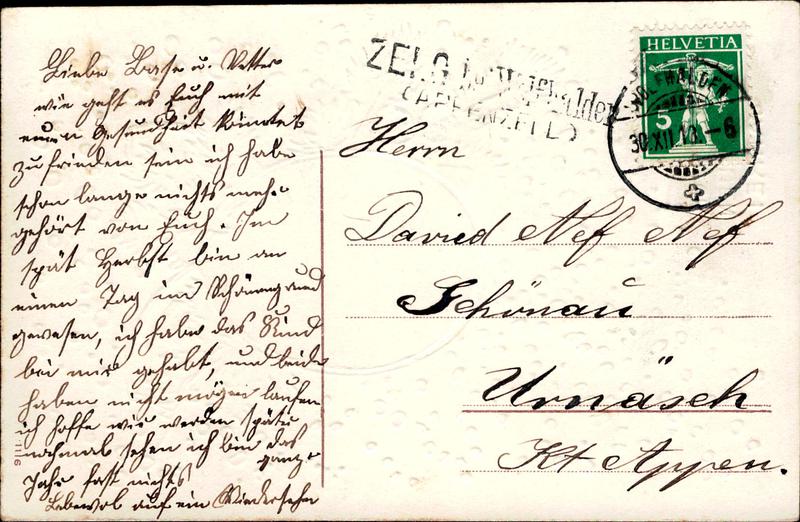 Liebe Base u. Vetter
wie geht es Euch mit
euren Gesundheit
zufrieden sein ich habe
schon lange nichts mehr
gehört von Euch. Im
spät Herbst bin an
einen Tag im Schönengrund
gewesen, ich habe das Kind
bei mir gehabt, und beide
haben nicht mögen laufen
ich hoffe wir werden später
nochmal sehen ich bin das
ganze
Jahr fast nichts
Lebewol auf ein Wiedersehn
ZELG bei Wolfhalden
(APPENZELL)
HELVETIA
5
WOLFHALDEN
30.XII.13.-6
Herrn
David Nef Nef
Schönau
Urnäsch
Kt Appen.